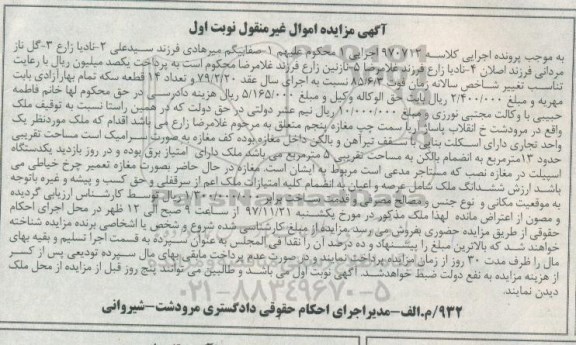 آگهی مزایده اموال غیرمنقول نوبت اول
به موجب پرونده اجرایی کلاسه ۹۷۰۷۱۲ اجرایی ۱ محکوم علیهم ۱-صفابیگم میرهادی فرزند سیدعلی ۲-نادیا زارع ۳-گل ناز
مردانی فرزند اصلان ۴-نادیا زارع فرزند غلامرضا ۵-نازنین زارع فرزند غلامرضا محکوم است به پرداخت یکصد میلیون ریال با رعایت
تناسب تغییر شاخص سالانه زمان فوت ۸۵/۶/۳ نسبت به اجرای سال عقد ۷۹/۲/۲۰ و تعداد ۱۴ قطعه سکه تمام بهار آزادی بابت
مهریه و مبلغ ۲/۴۰۰/۰۰۰ ریال بابت حق الوکاله وکیل و مبلغ ۵/۱۶۵/۰۰۰ ریال هزینه دادرسی در حق محکوم لها خانم فاطمه
حبیبی با وکالت مجتبی نوروزی و مبلغ ۱۰/۰۰۰/۰۰۰ ریال نیم عشر دولتی در حق دولت که در همین راستا نسبت به توقیف ملک
واقع در مرودشت خ انقلاب پاساژ آریا سمت چپ مغازه پنجم متعلق به مرحوم غلامرضا زارع می باشد اقدام که ملک موردنظر یک
واحد تجاری دارای اسکلت بنایی با سقف تیرآهن و بالکن داخل مغازه بوده کف مغازه به صورت سرامیک است مساحت تقریبی
حدود ۱۳مترمربع به انضمام بالکن به مساحت تقریبی ۵ مترمربع می باشد ملک دارای امتیاز برق بوده و در روز بازدید یکدستگاه
اسپیلت در مغازه نصب که مستاجر مدعی است مربوط به ایشان است. مغازه در حال حاضر بصورت مغازه تعمیر چرخ خیاطی می
باشد ارزش ششدانگ ملک شامل عرصه و اعیان با انضمام کلیه امتیازات ملک اعم از سرقفلی و حق کسب و پیشه و غیره باتوجه
به موقعیت مکانی و نوع جنس و مصالح مصرفی و قدمت ساخت برابر توسط کارشناس ارزیابی گردیده
و مصون از اعتراض مانده لهذا ملک مذکور در مورخ یکشنبه ۹۷/۱۱/۲۱ از ساعت ۹ صبح الی ۱۲ ظهر در محل اجرای احکام
حقوقی از طریق مزایده حضوری بفروش می رسد. مزایده از مبلغ کارشناسی شده شروع و شخص یا اشخاصی برنده مزایده شناخته
خواهند شد که بالاترین مبلغ را پیشنهاد و ده درصد آن را نقدا فی المجلس به عنوان سپرده به قسمت اجرا تسلیم و بقیه بهای
مال را ظرف مدت ۳۰ روز از زمان مزایده پرداخت نمایند و در صورت عدم پرداخت مابقی بهای مال سپرده تودیعی پس از کسر
از هزینه مزایده به نفع دولت ضبط خواهد شد. آگهی نوبت اول می باشد و طالبین می توانند پنج روز قبل از مزایده از محل ملک
دیدن نمایند.
۰۲۱-۸۸۳۴۹۶۷۰-۵
۹۳۲/م.الف-مدیراجرای احکام حقوقی دادگستری مرودشت-شیروانی